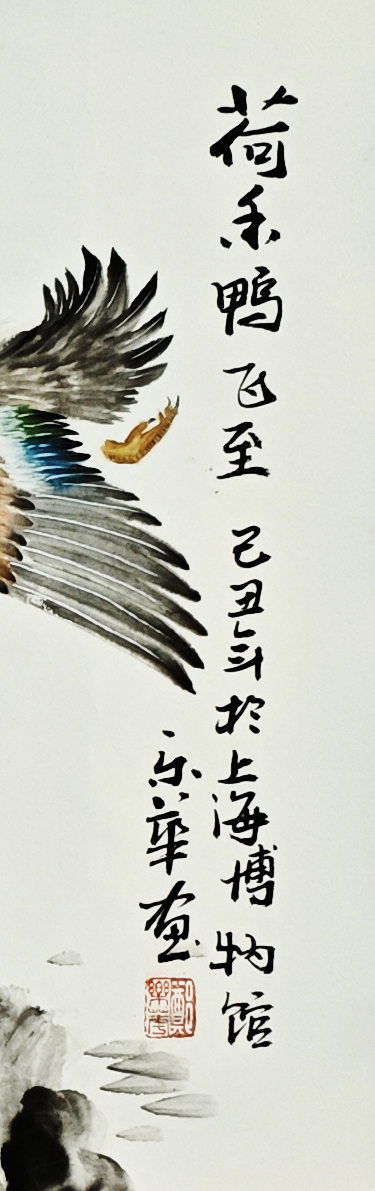 荷禾鸭飞至 己丑年於上海博物馆
乐华画
鄭樂華